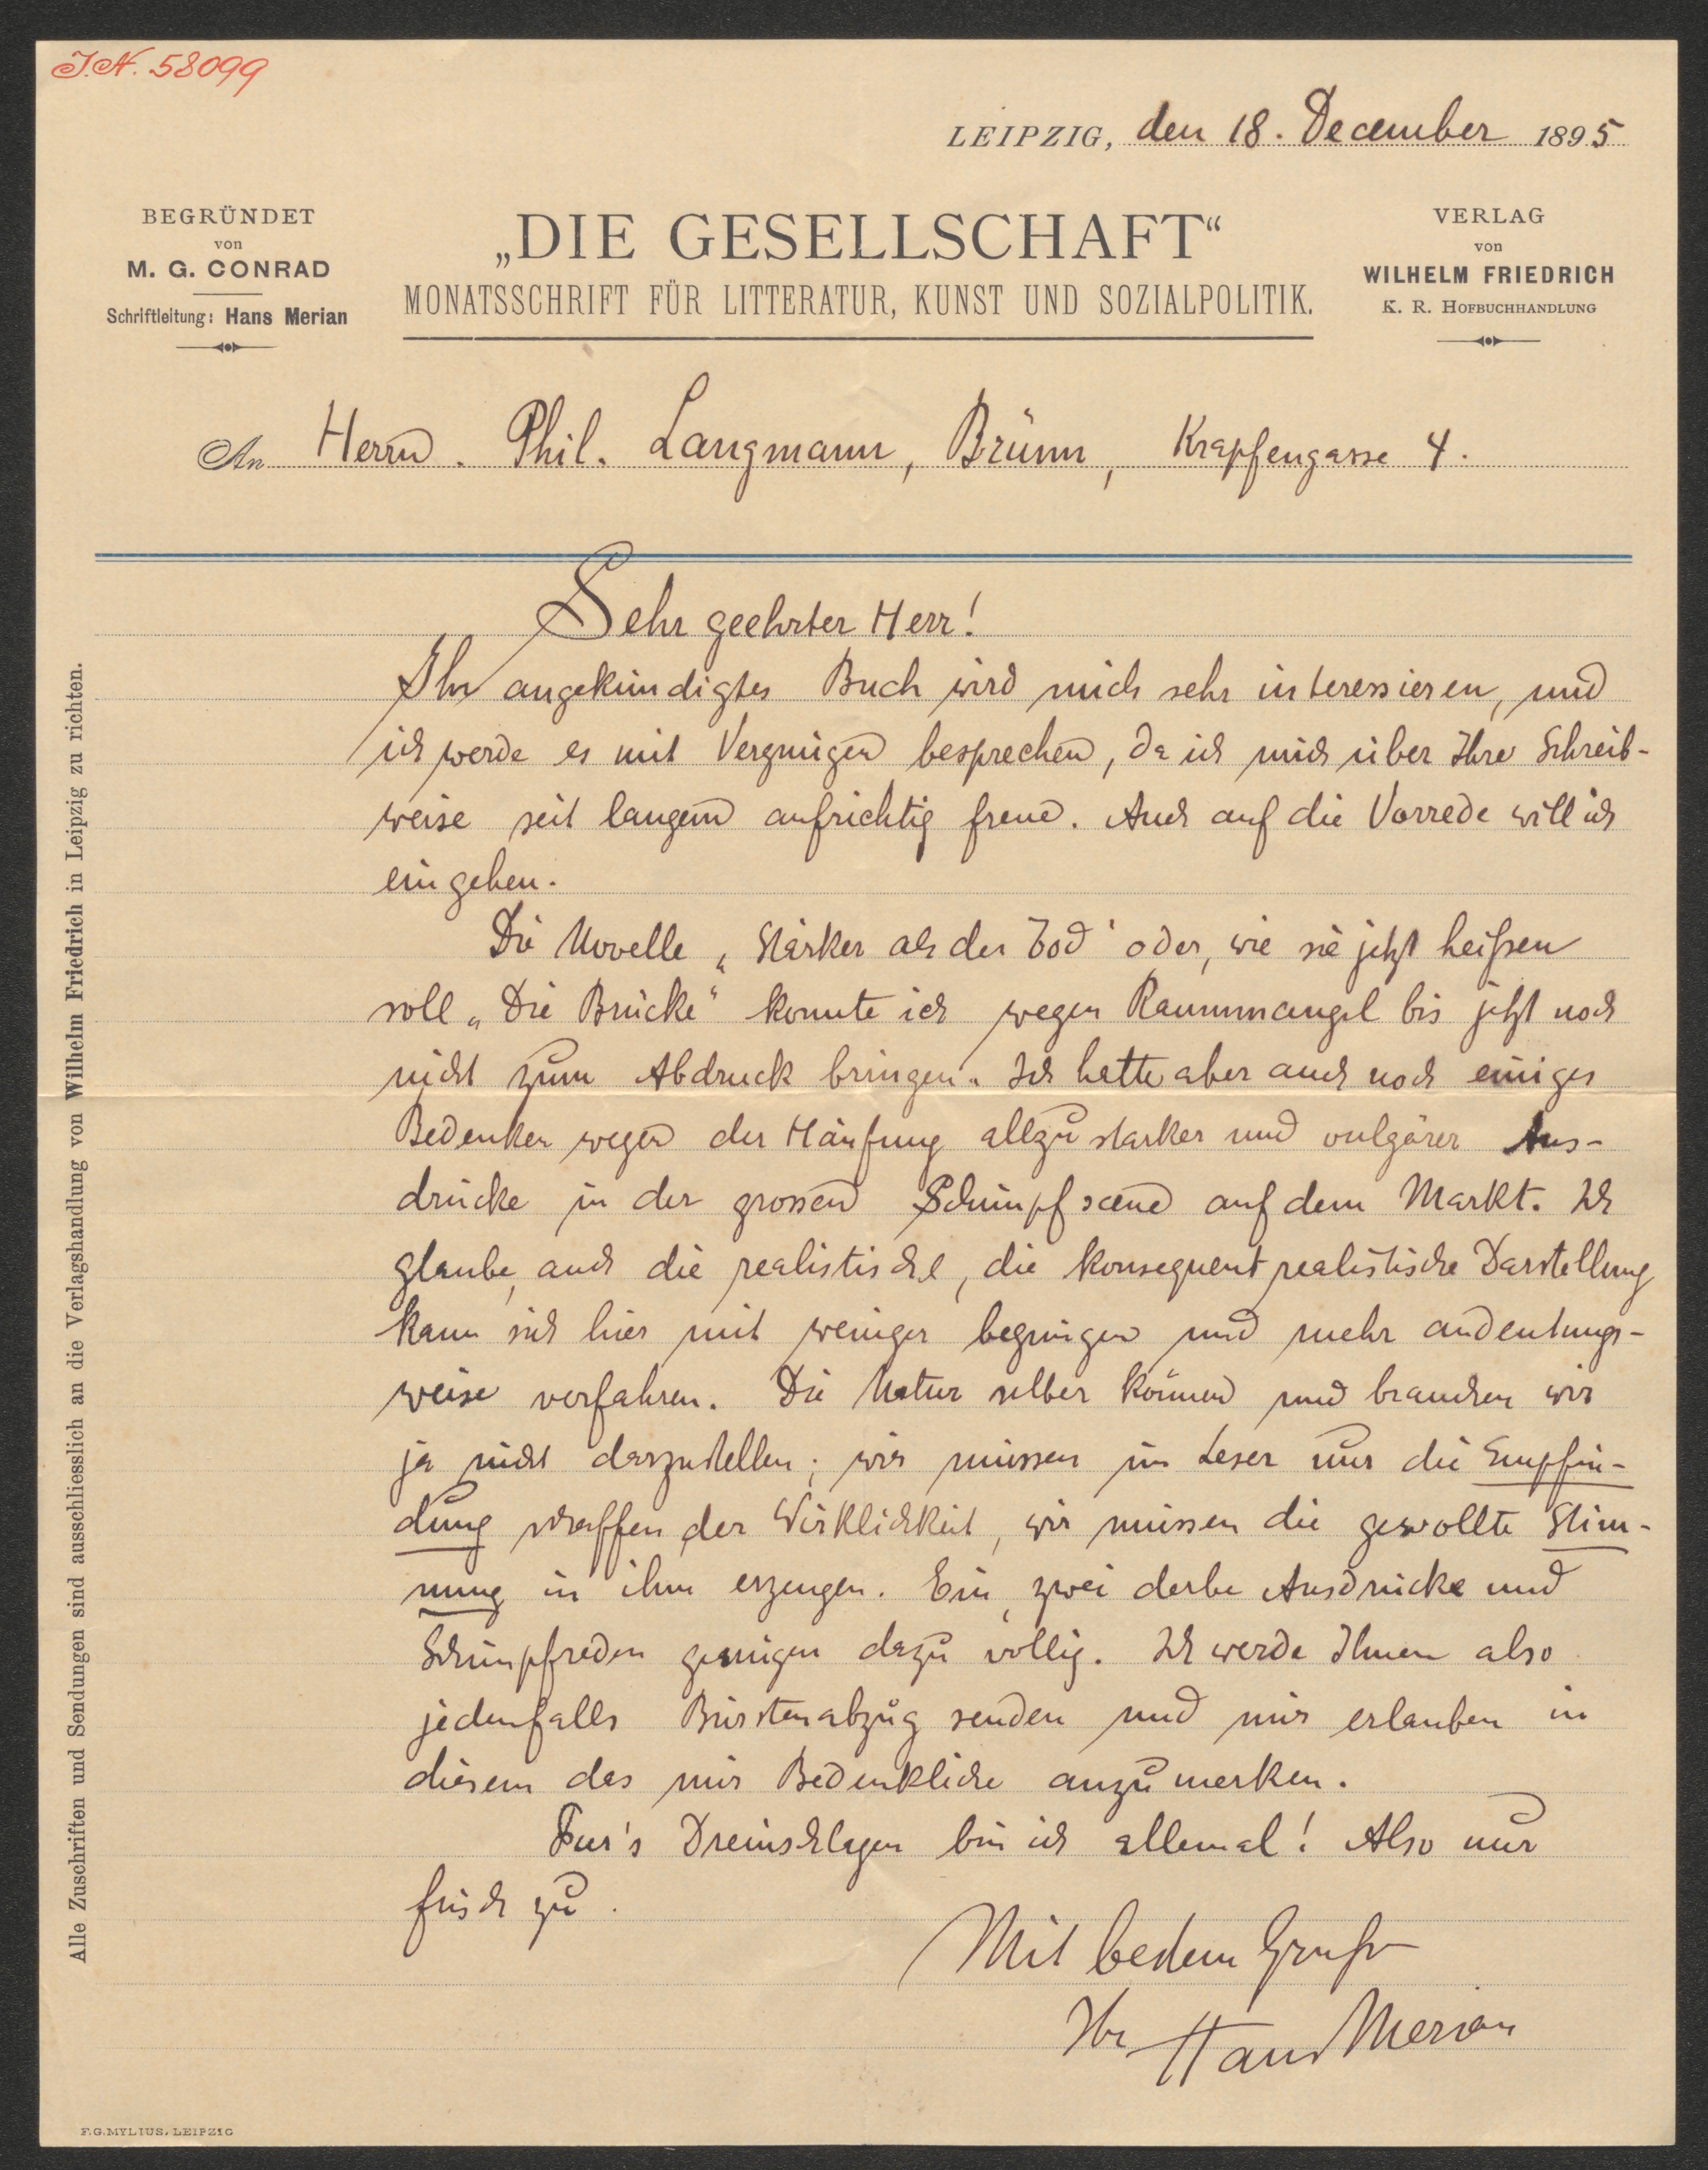 J.N. 58099
LEIPZIG, den 18. December 1895
BEGRÜNDET
von
M. G. CONRAD
Schriftleitung: Hans Merian
„DIE GESELLSCHAFT“
MONATSSCHRIFT FÜR LITTERATUR, KUNST UND SOZIALPOLITIK.
VERLAG
von
WILHELM FRIEDRICH
K. R. HOFBUCHHANDLUNG
An Herrn. Phil. Langmann, Brünn, Krapfengasse 4.
Sehr geehrter Herr!
Ihr angekündigtes Buch wird mich sehr interessieren, und
ich werde es mit Vergnügen besprechen, da ich mich über Ihre Schreib-
weise seit langem aufrichtig freue. Auch auf die Vorrede will ich
eingehen.
Die Novelle „Stärker als der Tod“ oder, wie sie jetzt heißen
soll „Die Brücke“ konnte ich wegen Raummangel bis jetzt noch
nicht zum Abdruck bringen. Ich hatte aber auch noch einiges
Bedenken wegen der Häufung allzu starker und vulgärer Aus-
drücke in der grossen Schimpfscene auf dem Markt. Ich
glaube, auch die realistische, die konsequent realistische Darstellung
kann sich hier mit weniger begnügen und mehr andeutungs-
weise verfahren. Die Natur selber können und brauchen wir
ja nicht darzustellen; wir müssen im Leser nur die Empfin-
dung schaffen der Wirklichkeit, wir müssen die gewollte Stim-
mung in ihm erzeugen. Ein, zwei derbe Ausdrücke und
Schimpfreden genügen dazu völlig. Ich werde Ihnen also
jedenfalls Bürstenabzug senden und mir erlauben in
diesem das mir Bedenkliche anzumerken.
Für's Dreinschlagen bin ich allemal! Also nur
frisch zu.
Mit bestem Gruße
Ihr Hans Merian
Alle Zuschriften und Sendungen sind ausschliesslich an die Verlagshandlung von Wilhelm Friedrich in Leipzig zu richten.
F.G.MYLIUS, LEIPZIG